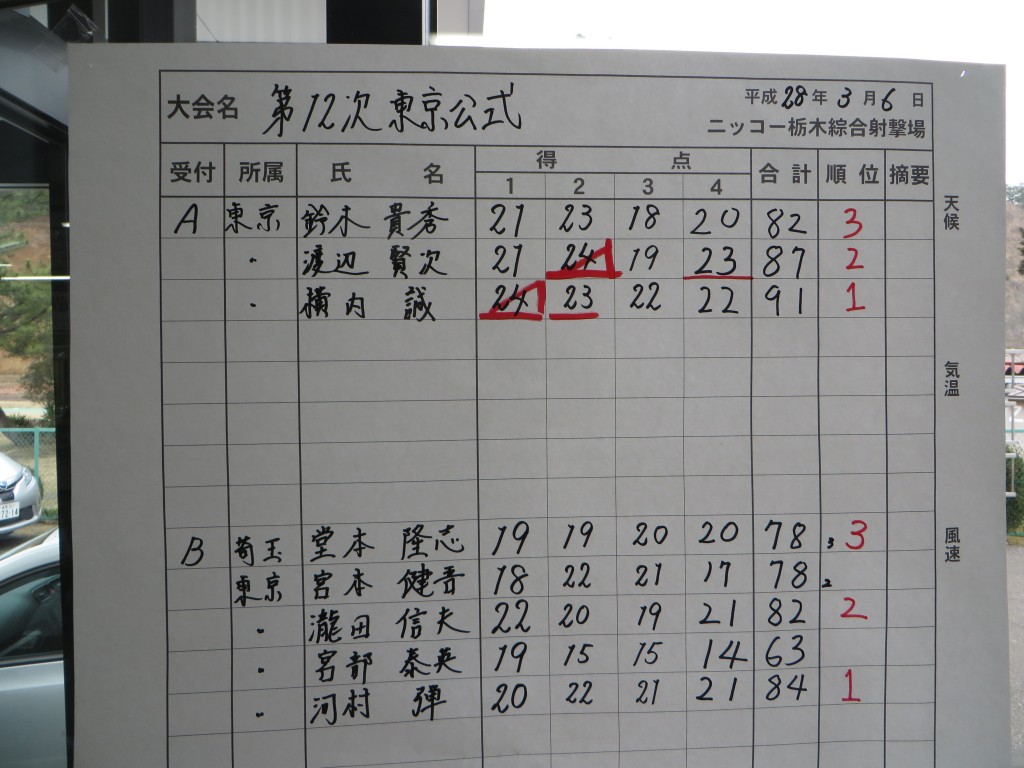 大会名 第12次 東京公式 平成28年3月6日
ニッコー栃木綜合射撃場
受付 所属 氏名 得点 合計 順位 摘要
1 2 3 4
A 東京 鈴木 貴秀 21 23 18 20 82 3
〃 渡辺 賢次 21 24 19 23 87 2
〃 横内 誠 24 23 22 22 91 1
B 埼玉 堂本 隆志 19 19 20 20 78 3 3
東京 宮本 健吾 18 22 21 17 78 2
〃 瀧田 信夫 22 20 19 21 82 2
〃 宮部 泰英 19 15 15 14 63
〃 河村 弾 20 22 21 21 84 1
天候
気温
風速